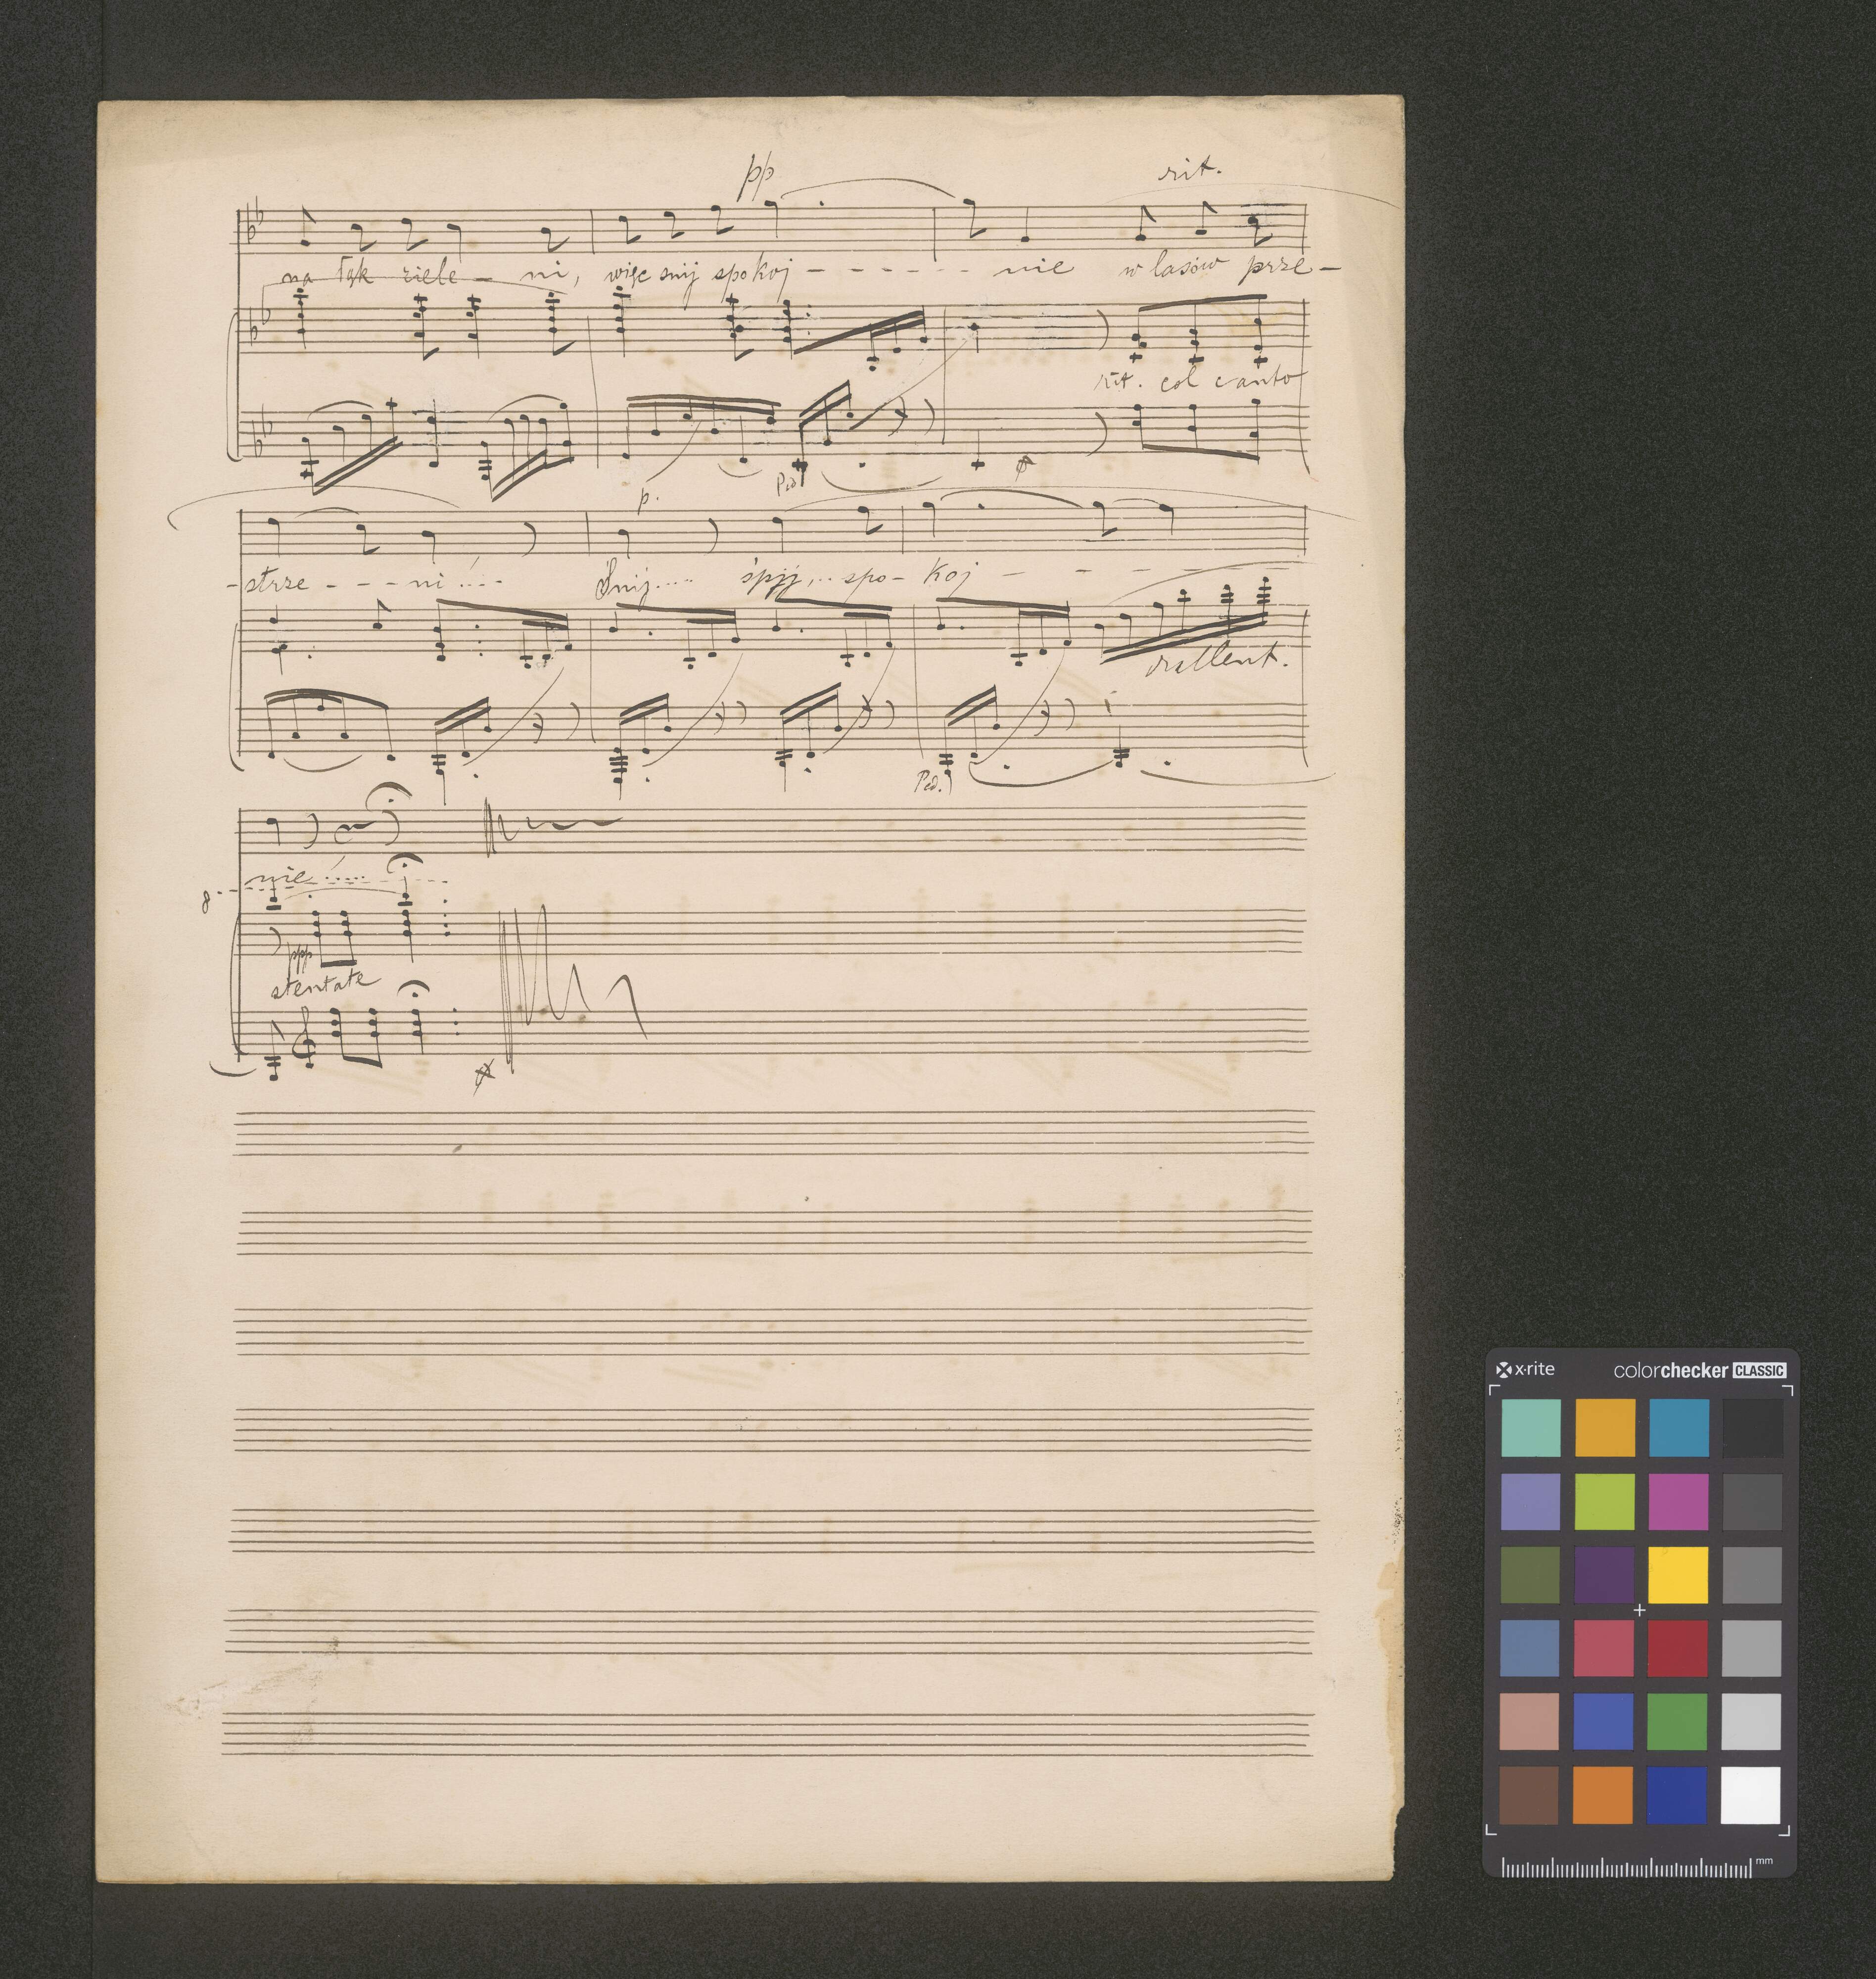 pp
rit.
na łąk ziele - ni, więc śnij spokoj - - - - - - nie w lasów prze -
rit. col canto
p.
Ped
- strze - - - ni .....
Śnij..... śpij,.. spo - koj - - - - - -
rallent.
Ped.
nie .....
8
ppp
stentate
x·rite colorchecker CLASSIC
mm